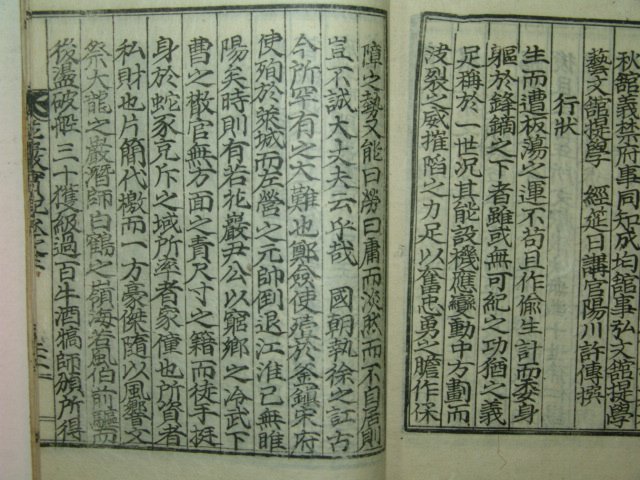 秋館義禁府事同知成均館事弘文館提學
藝文館提學 經筵日講官陽川許傳撰
行狀
生而遭板蕩之運不苟且作偸生計而委身
軀於鋒鏑之下者雖或無可紀之功猶之義
足稱於一世况其能設機應變動中方劃而
泼裂之威摧陷之力足以奮忠勇之膽作保
障之藝又能曰勞曰庸而淡然而不自居則
豈不誠大丈夫云乎哉 國朝執徐之訌古
今所罕有之大難也鄭僉使殪於釜鎭宋府
使殉於萊城而左營之元帥倒退江淮已無睢
陽矣時則有若花巖尹公以窮鄕之冷武下
曹之檄官無方面之責尺寸之籍而徒手挺
身於蛇豕充斥之域所率者家僮也所資者
私財也片簡代檄而一方豪傑隨以風響文
祭大龍之巖潛師白鶴之嶺海若風伯前驅而
後盪破船三十獲級過百牛酒犒師頒所得